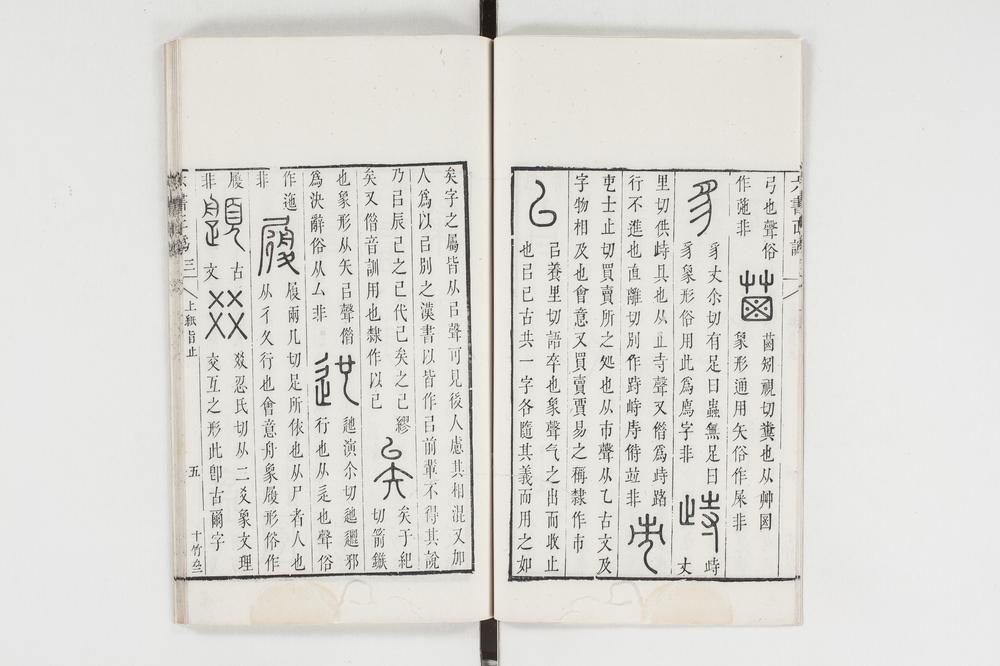 弓也聲俗
作 非
菌矧視切糞也从艸囷
象形通用矢俗作屎非
豸丈尒切有足曰蟲無足曰
豸象形俗用此爲廌字非
峙丈
里切供峙具也从止寺聲又借爲峙路
行不進也直離切別作跱峙庤偫並非
士止切買賣所之処也从巿聲从乁古文及
字物相及也會意又買賣賈易之稱隸作市
㠯養里切語卒也象聲气之出而收止
也㠯已古共一字各隨其義而用之如
矣字之屬皆从㠯聲可見後人慮其相混又加
人爲以㠯別之漢書以皆作㠯前輩不得其說
乃㠯辰巳之巳代已矣之已繆
矣又借音訓用也隸作以已
矣于紀
切箭鏃
也象形从矢㠯聲借
爲決辭俗从厶非
迆演尒切迆邐邪
行也从辵也聲俗
作迤
非
履兩几切足所依也从尸者人也
从彳夂行也會意舟象履形俗作
履
非
古
文
㸚忍氏切从二爻象文理
交互之形此卽古爾字
六書正譌 三
上紙旨止
五
十竹斋